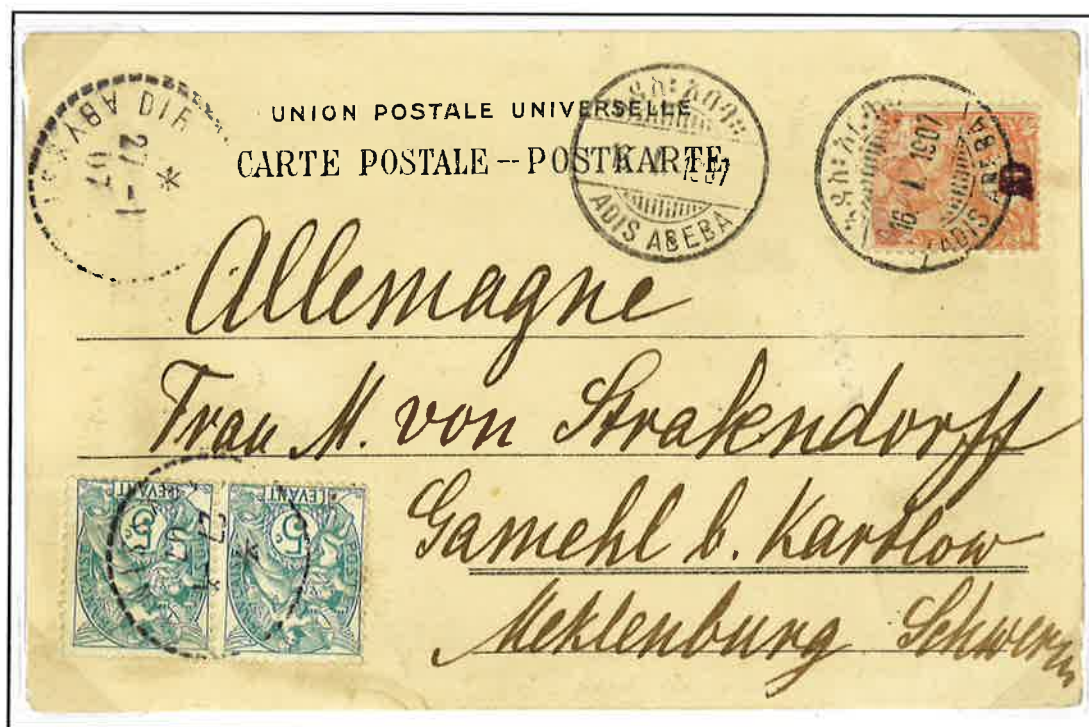 UNION POSTALE UNIVERSELLE
CARTE POSTALE -- POSTKARTE
27-1
07
ADIS ABEBA
16 1 1907
ADIS ABEBA
Allemagne
Frau M. von Strakendorff
Gamehl b. Kartlow
Meklenburg Schwerin
LEVANT
5c
LEVANT
5c